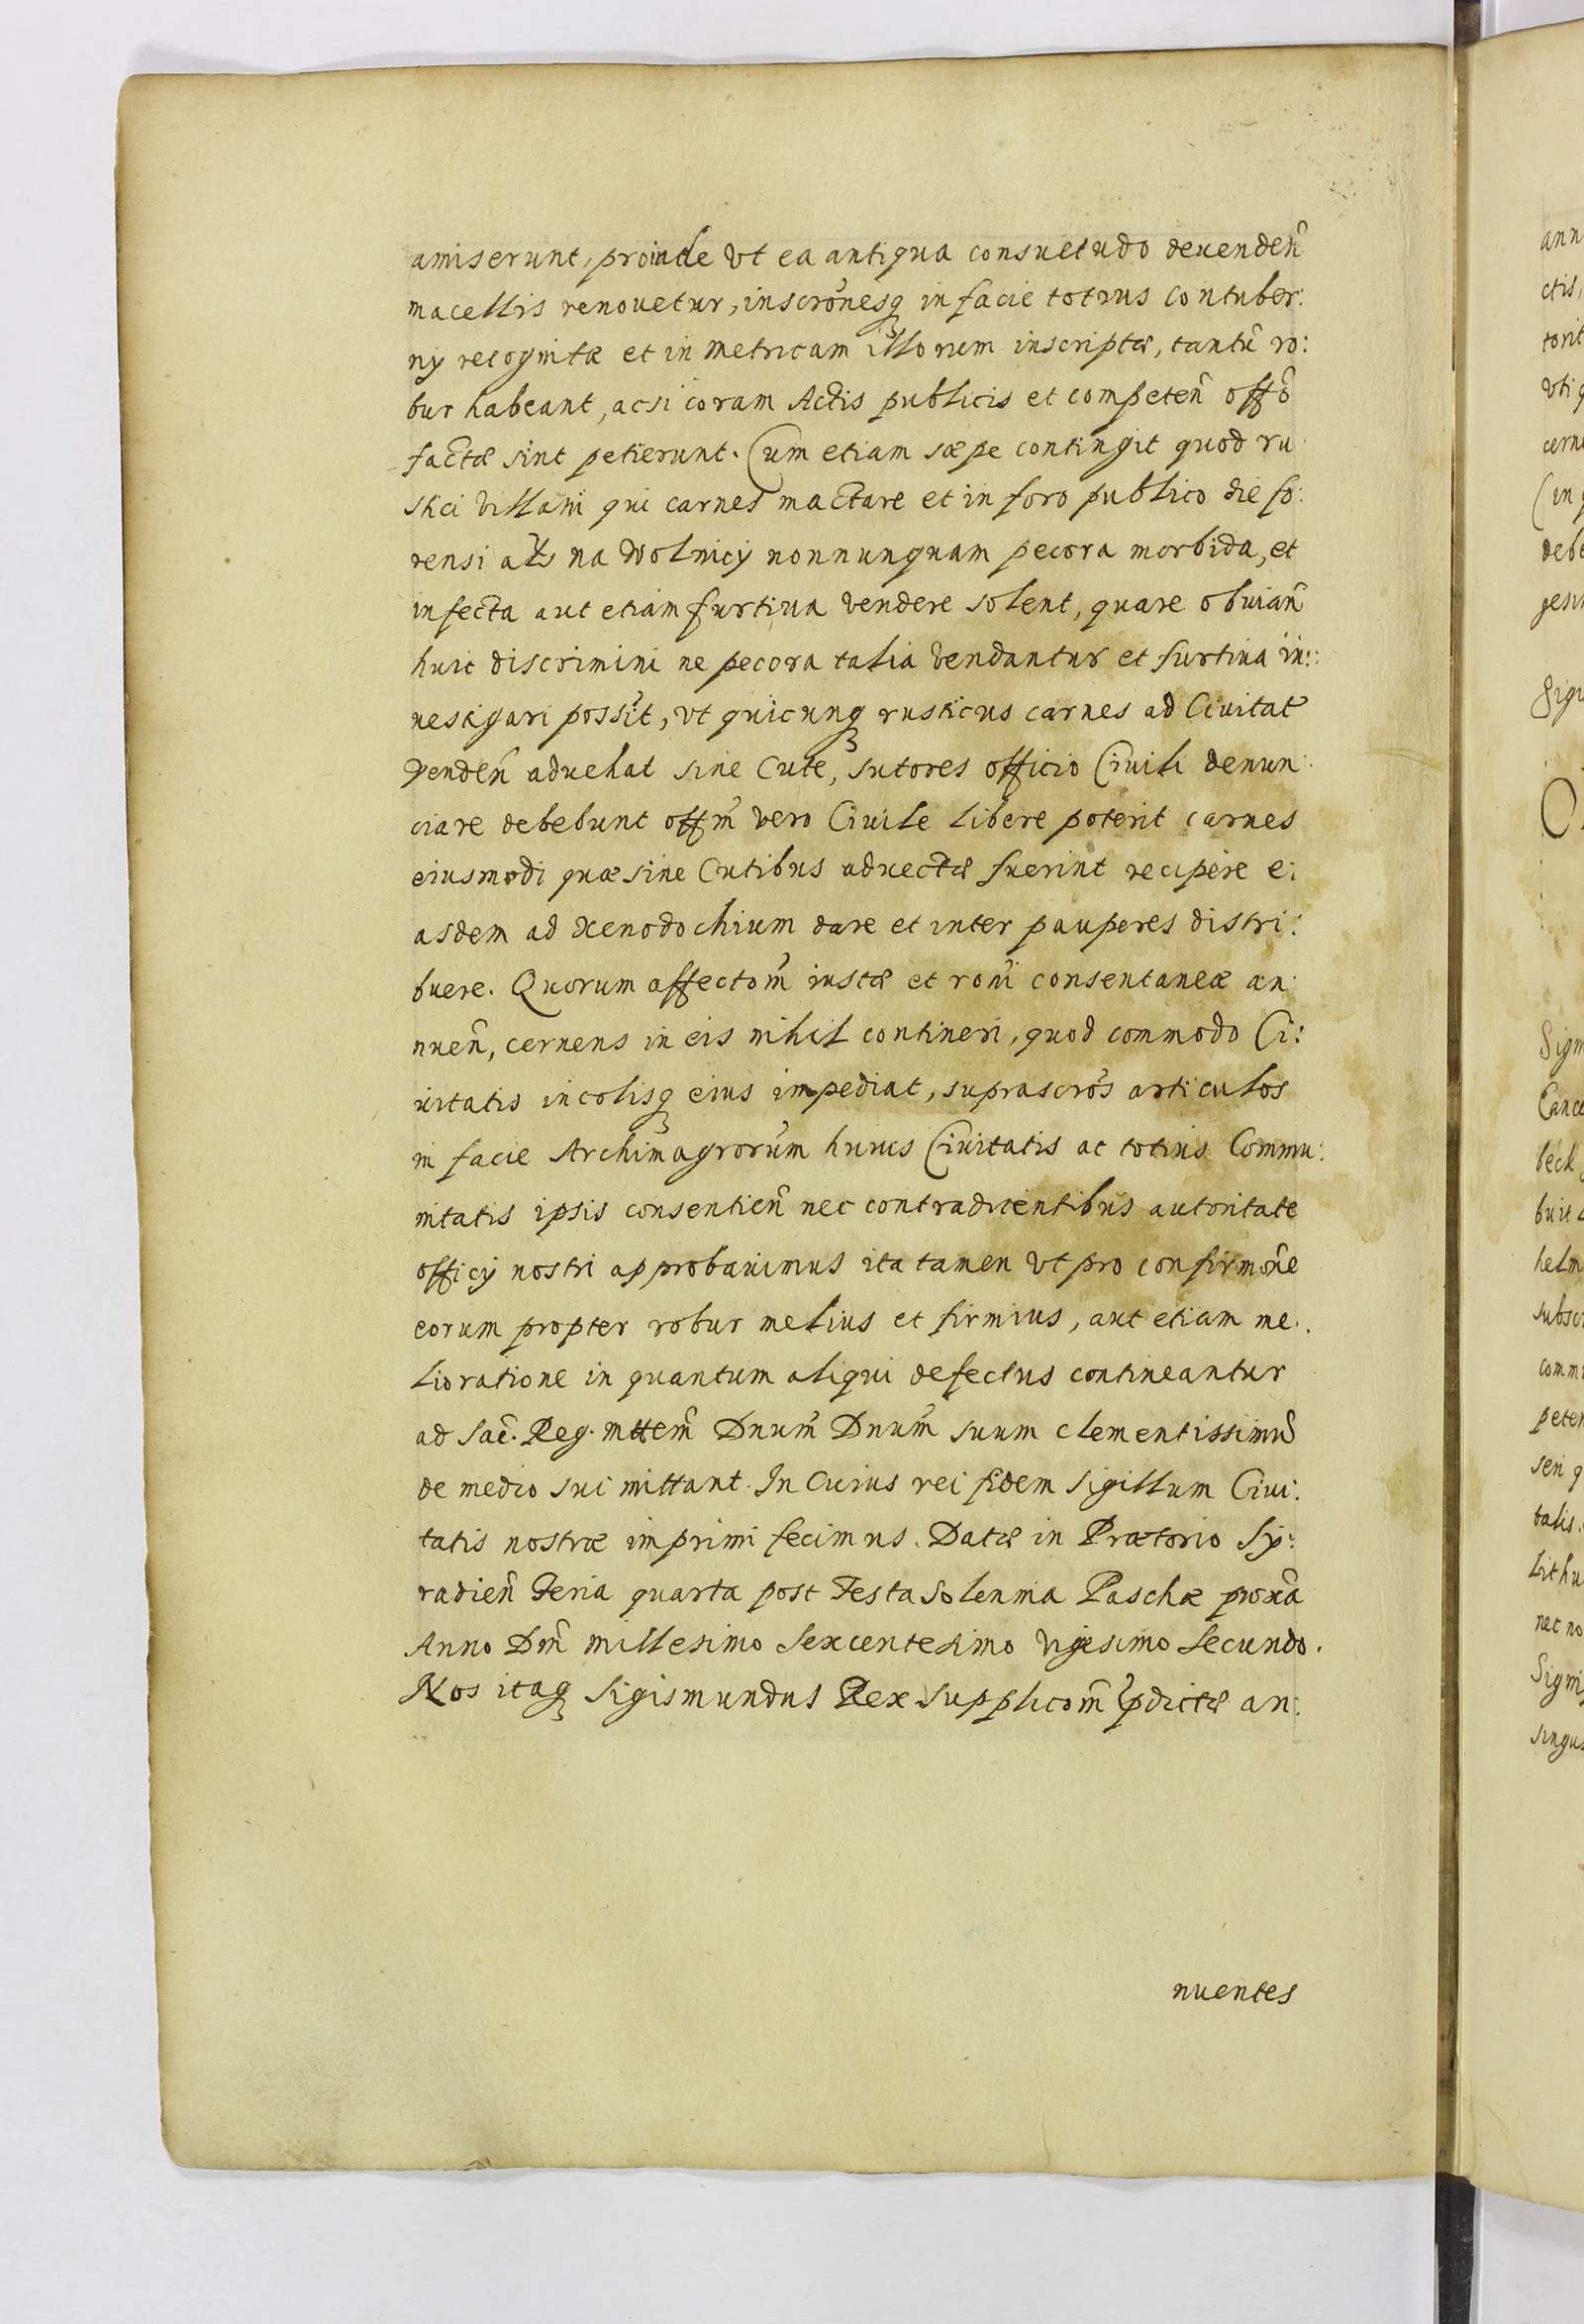 amiserunt, proinde vt ea antiqua consuetudo deuendeñ
macellis renouetur, inscrõnesq in facie totius contuber:
nÿ recognitæ et in metricam illorum inscriptæ, tantũ ro:
bur habeant, acsi coram Actis publicis et competeñ offõ
factæ sint petierunt. Cum etiam sæpe contingit quod ru
stici villani qui carnes mactare et in foro publico die fo:
rensi al̃s na Wolnicÿ nonnunquam pecora morbida, et
infecta aut etiam furtiua vendere solent, quare obuiañ
huic discrimini ne pecora talia vendantur et furtiua in:
uestigari possĩt, vt quicunq rusticus carnes ad Ciuitat̃
vendeñ aduehat sine Cute, sutores officio Ciuili denun:
ciare debebunt offm̃ vero Ciuile libere poterit carnes
eiusmodi quæ sine Cutibus aduectæ fuerint recipere e:
asdem ad xenodochium dare et inter pauperes distri:
buere. Quorum affectom̃ iustæ et roñi consentaneæ an:
nueñ, cernens in eis nihil contineri, quod commodo Ci:
uitatis incolisq eius impediat, suprascrõs articulos
in facie Archimagrorum huius Ciuitatis ac totius Commu:
nitatis ipsis consentieñ nec contradicentibus autoritate
officÿ nostri approbauimus ita tamen vt pro confirmõne
eorum propter robur melius et firmius, aut etiam me:
lioratione in quantum aliqui defectus contineantur
ad Sac̃. Reg. Mttem̃ Dnum̃ Dnum̃ suum clementissimũ
de medio sui mittant. In Cuius rei fidem Sigillum Ciui:
tatis nostræ imprimi fecimus. Datæ in Prætorio Sÿ:
radieñ Feria quarta post Festa Solennia Paschæ prox̃a
Anno Dñi millesimo Sexcentesimo vigesimo secundo.
Nos itaq Sigismundus Rex supplicom̃ p̃dictæ an:
nuentes